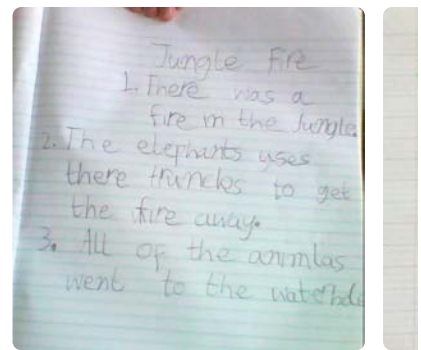 Jungle Fire
1. There was a
fire in the Jungle.
2. The elephants uses
there truncks to get
the fire away.
3. All of the animlas
went to the